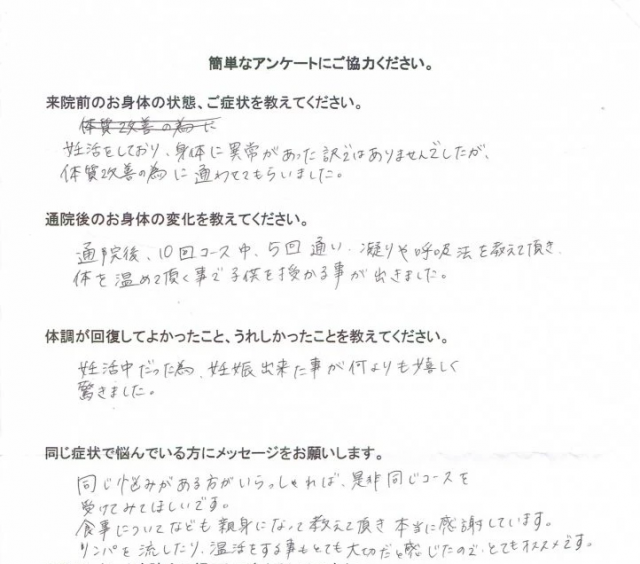 簡単なアンケートにご協力ください。
来院前のお身体の状態、ご症状を教えてください。
体質改善の為に
妊活をしており、身体に異常があった訳ではありませんでしたが、
体質改善の為に通わせてもらいました。
通院後のお身体の変化を教えてください。
通院後、10回コース中、5回通い、凝りや呼吸法を教えて頂き、
体を温めて頂く事で子供を授かる事が出きました。
体調が回復してよかったこと、うれしかったことを教えてください。
妊活中だった為、妊娠出来た事が何よりも嬉しく
驚きました。
同じ症状で悩んでいる方にメッセージをお願いします。
同じ悩みがある方がいらっしゃれば、是非同じコースを
受けてみてほしいです。
食事についてなども親身になって教えて頂き本当に感謝しています。
リンパを流したり、温活をする事もとても大切だと感じたので、とてもオススメです。